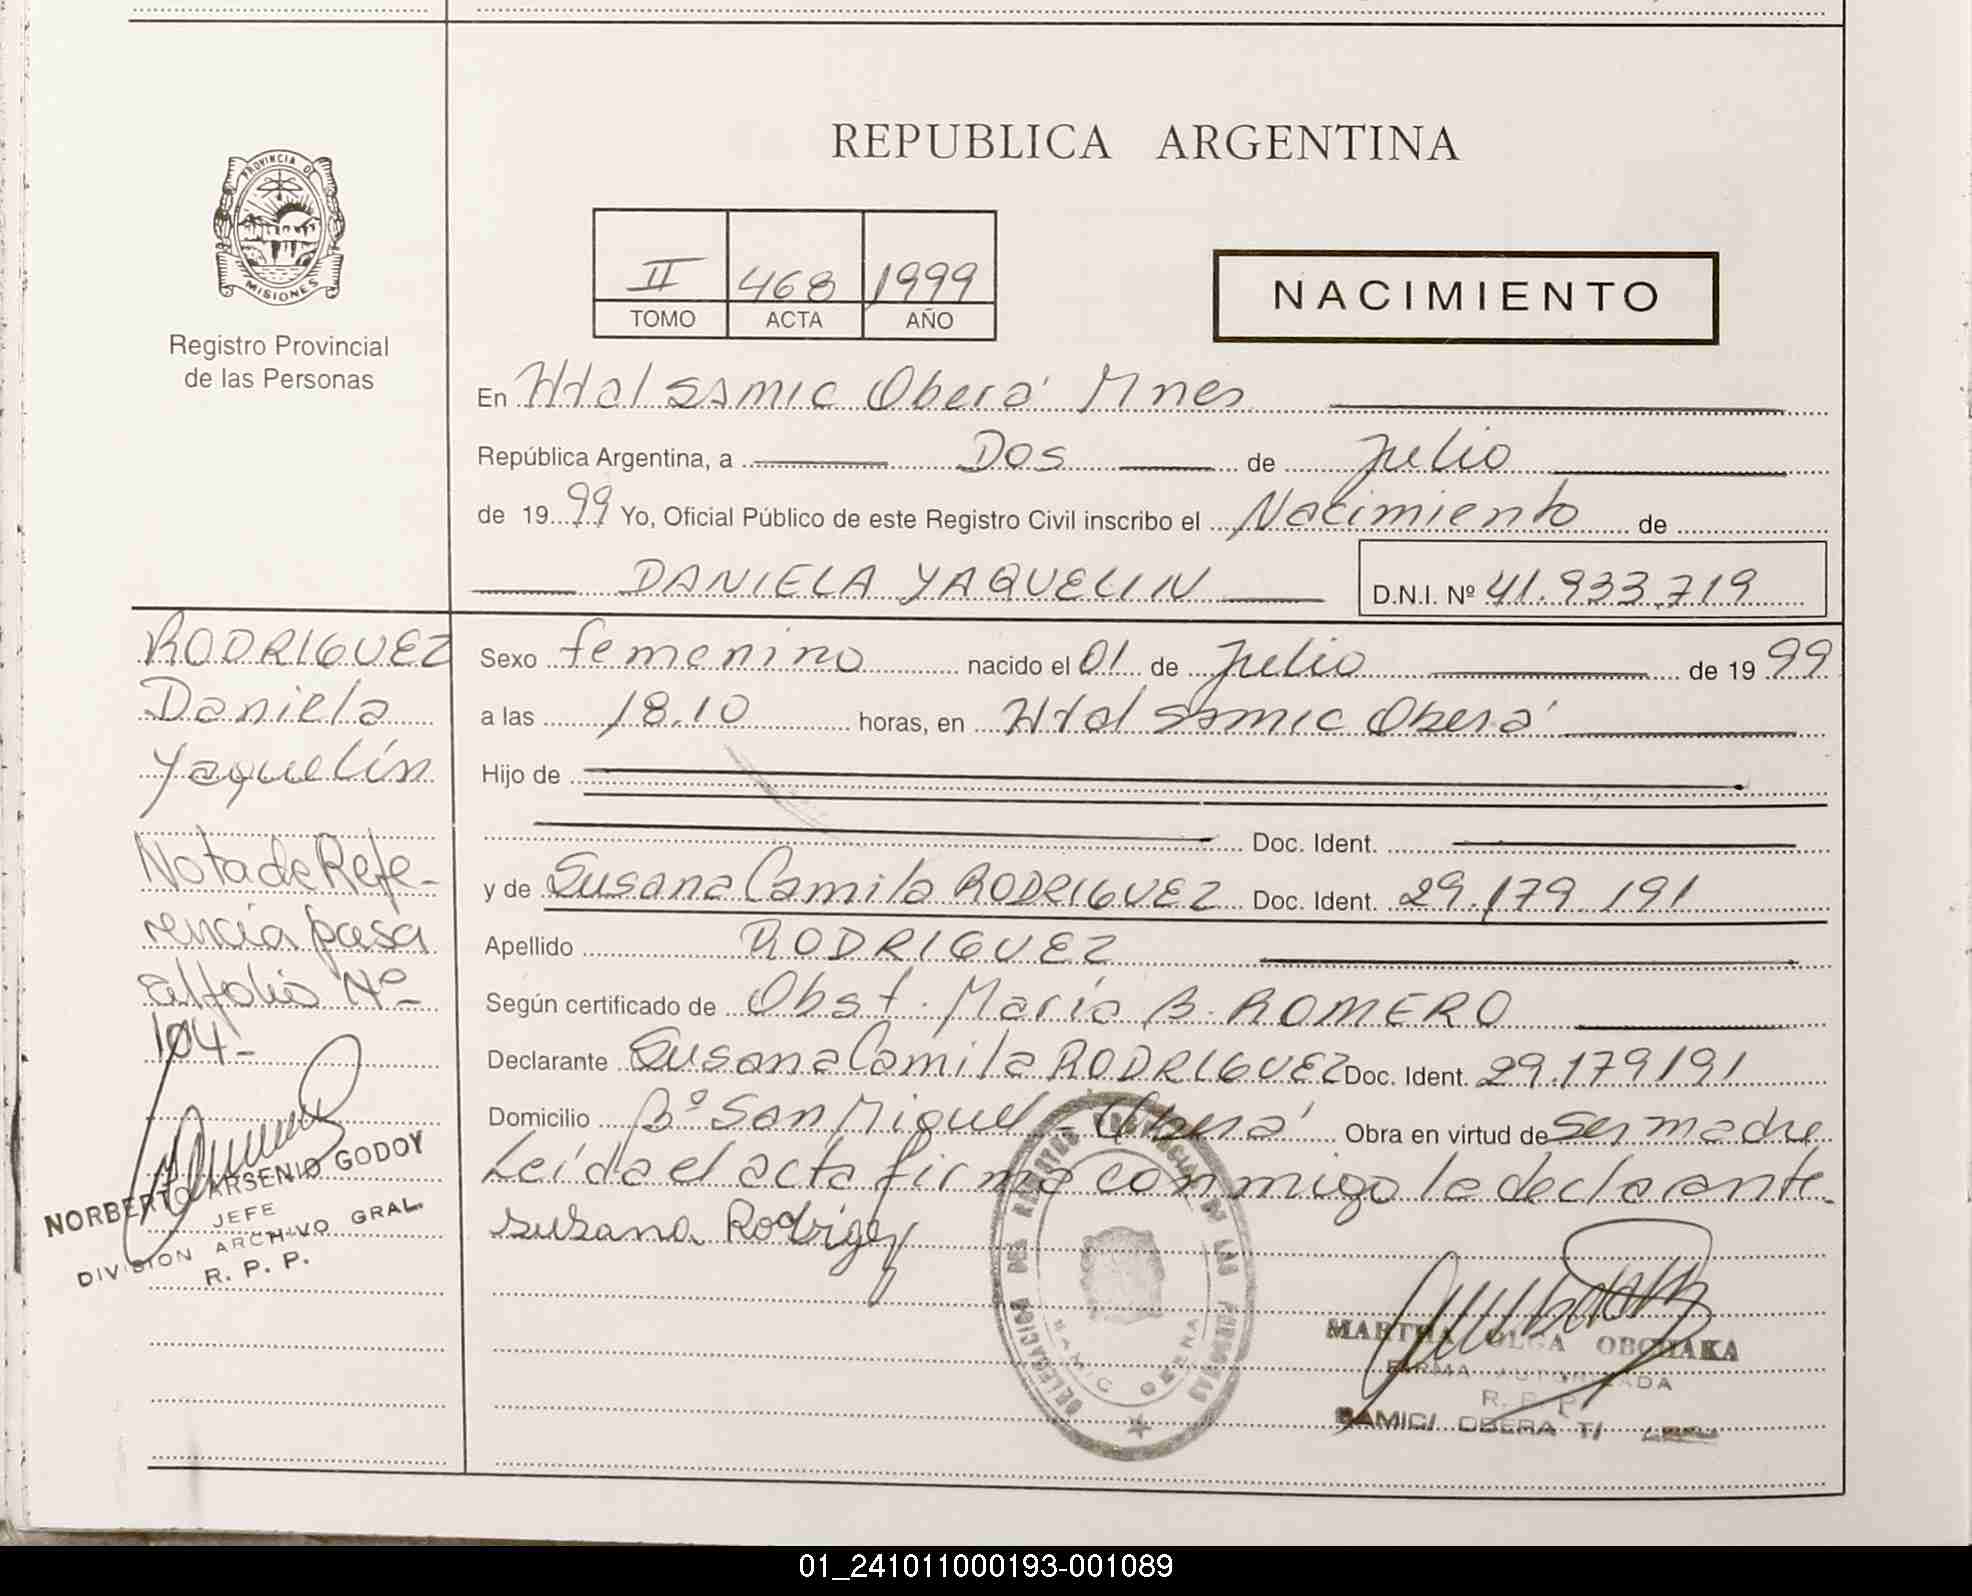 REPUBLICA ARGENTINA
PROVINCIA DE
MISIONES
Registro Provincial
de las Personas
II 468 1999
TOMO ACTA AÑO
NACIMIENTO
En Htal SAMIC Oberá Mnes
República Argentina, a Dos de Julio
de 1999 Yo, Oficial Público de este Registro Civil inscribo el Nacimiento de
DANIELA YAQUELIN D.N.I. Nº 41.933.719
RODRIGUEZ
Daniela
Yaquelín
Nota de Refe-
rencia pasa
al folio Nº
104-
NORBERTO ARSENIO GODOY
JEFE
DIVISION ARCHIVO GRAL.
R. P. P.
Sexo femenino nacido el 01 de Julio de 1999
a las 18.10 horas, en Htal SAMIC Oberá
Hijo de
Doc. Ident.
y de Susana Camila RODRIGUEZ Doc. Ident. 29.179.191
Apellido RODRIGUEZ
Según certificado de Obst. María B. ROMERO
Declarante Susana Camila RODRIGUEZ Doc. Ident. 29.179191
Domicilio Bº San Miguel - Oberá Obra en virtud de ser madre
Leída el acta firma conmigo la declarante.
Susana Rodrigez
DELEGACION DEL REGISTRO PROVINCIAL DE LAS PERSONAS
SAMIC OBERA
MARTHA OLGA OBCHAKA
FIRMA AUTORIZADA
R. P. P.
SAMIC/ OBERA T/
01_241011000193-001089